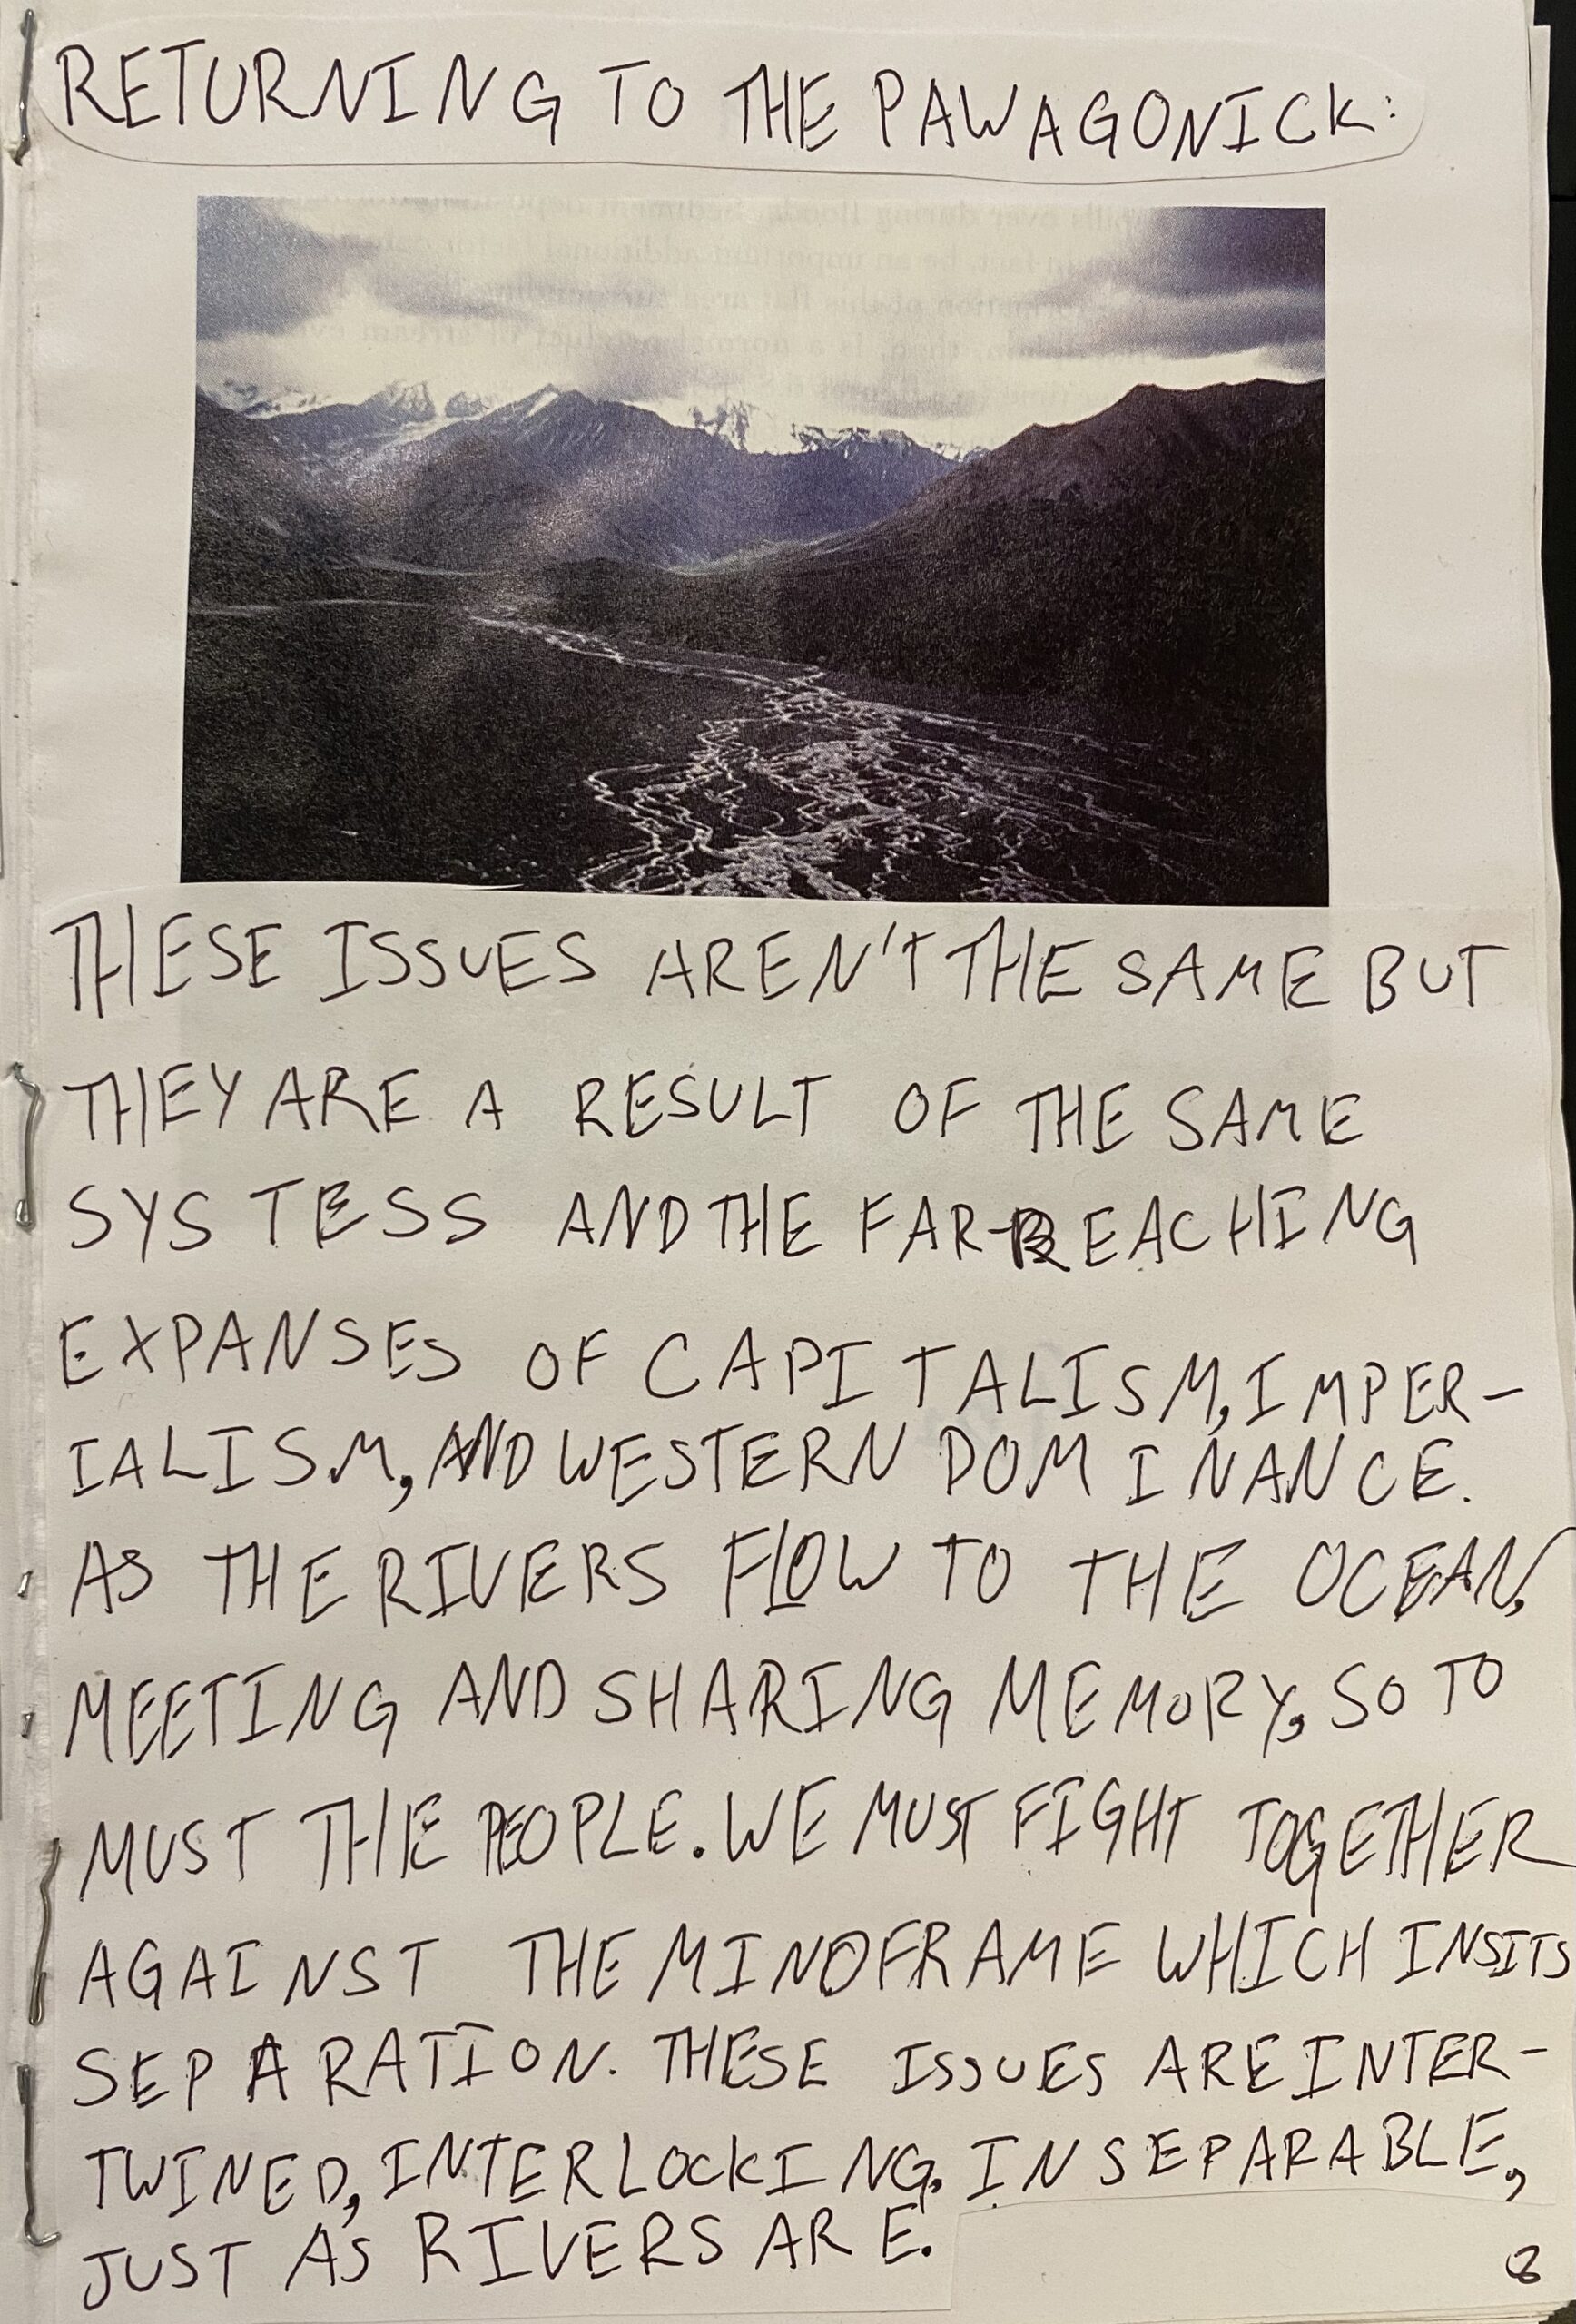 RETURNING TO THE PAWAGONICK:
THESE ISSUES AREN'T THE SAME BUT
THEY ARE A RESULT OF THE SAME
SYSTESS AND THE FAR-REACHING
EXPANSES OF CAPITALISM, IMPER-
IALISM, AND WESTERN DOMINANCE.
AS THE RIVERS FLOW TO THE OCEAN,
MEETING AND SHARING MEMORY, SO TO
MUST THE PEOPLE. WE MUST FIGHT TOGETHER
AGAINST THE MINDFRAME WHICH INSITS
SEPARATION. THESE ISSUES ARE INTER-
TWINED, INTERLOCKING, INSEPARABLE,
JUST AS RIVERS ARE.
8